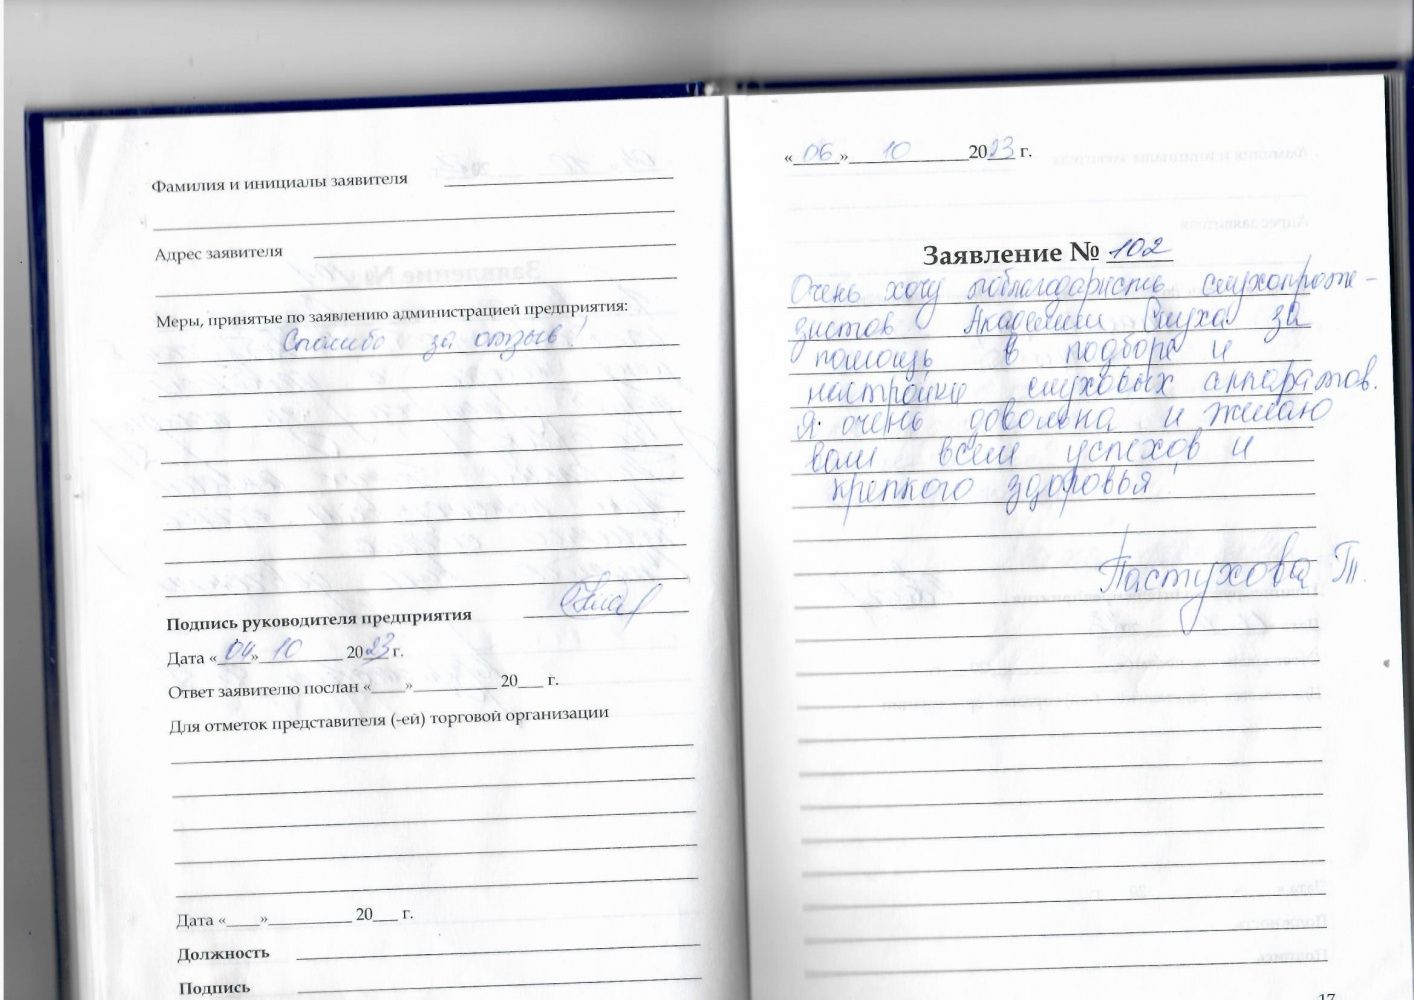 Фамилия и инициалы заявителя
Адрес заявителя
Меры, принятые по заявлению администрацией предприятия:
Спасибо за отзыв!
Подпись руководителя предприятия
Дата «04» 10 2023 г.
Ответ заявителю послан «____»__________ 20___ г.
Для отметок представителя (-ей) торговой организации
Дата «____»__________ 20___ г.
Должность
Подпись
«06» 10 2023 г.
Заявление № 102
Очень хочу поблагодарить слухопроте-
зистов Академии Слуха за
помощь в подборе и
настройке слуховых аппаратов.
Я очень довольна и желаю
вам всем успехов и
крепкого здоровья!
Пастухова Т.
17